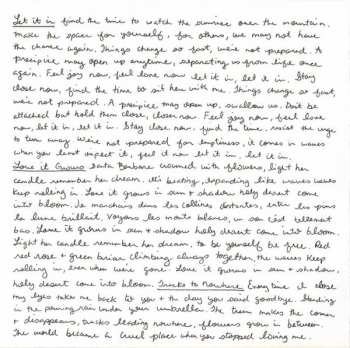 Let it in find the time to watch the sunrise over the mountain.
Make the space for yourself, for others, we may not have
the chance again. Things change so fast, we're not prepared. A
precipice may open up anytime, separating us from life once
again. Feel joy now, feel love now let it in, let it in. Stay
close now, find the time to sit here with me. Things change so fast,
we're not prepared. A precipice may open up, swallow us. Don't be
attached but hold them close, closer now. Feel joy now, feel love
now, let it in, let it in. Stay close now. find the time, resist the urge
to turn away. We're not prepared for emptiness, it comes in waves
when you least expect it, feel it now let it in, let it in.
Love it Grows Santa Barbara covered with flowers, light her
candle remember her dream, it's beating, depending like waves waves
keep rolling in Love it grows in sun & shadow holy desert come
into bloom. Je marchais dans les collines distantes, entre les pins
la lune brillait, Voyons les monts blancs, un son est tellement
bas. Love it grows in sun & shadow holy desert come into bloom.
Light her candle remember her dream, to be yourself be free. Red
red rose & green briar climbing always together, the waves keep
rolling in, even when we're gone. Love it grows in sun & shadow,
holy desert come into bloom. Tracks to Nowhere Every time I close
my eyes take me back to you & the day you said goodbye. Standing
in the pouring rain under your umbrella. The train makes the corner
& disappears, tracks leading nowhere, flowers grow in between.
The world became a cruel place when you stopped loving me.